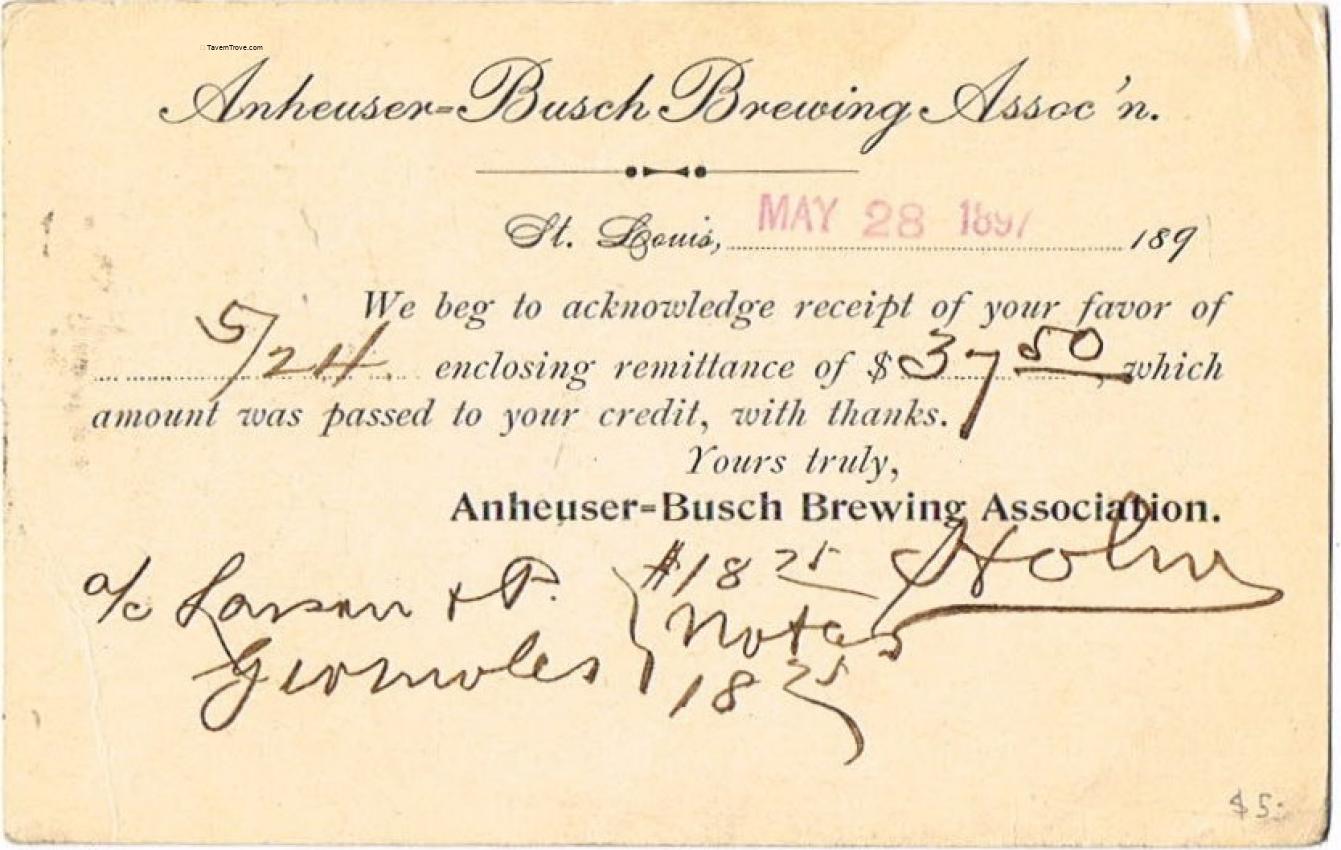 TavernTrove.com
Anheuser-Busch Brewing Assoc'n.
St. Louis, MAY 28 1897 189
We beg to acknowledge receipt of your favor of
5/24 enclosing remittance of $ 37 50, which
amount was passed to your credit, with thanks.
Yours truly,
Anheuser-Busch Brewing Association.
a/c Larson & P. $18 75 Holm
Notes
18 75
$5